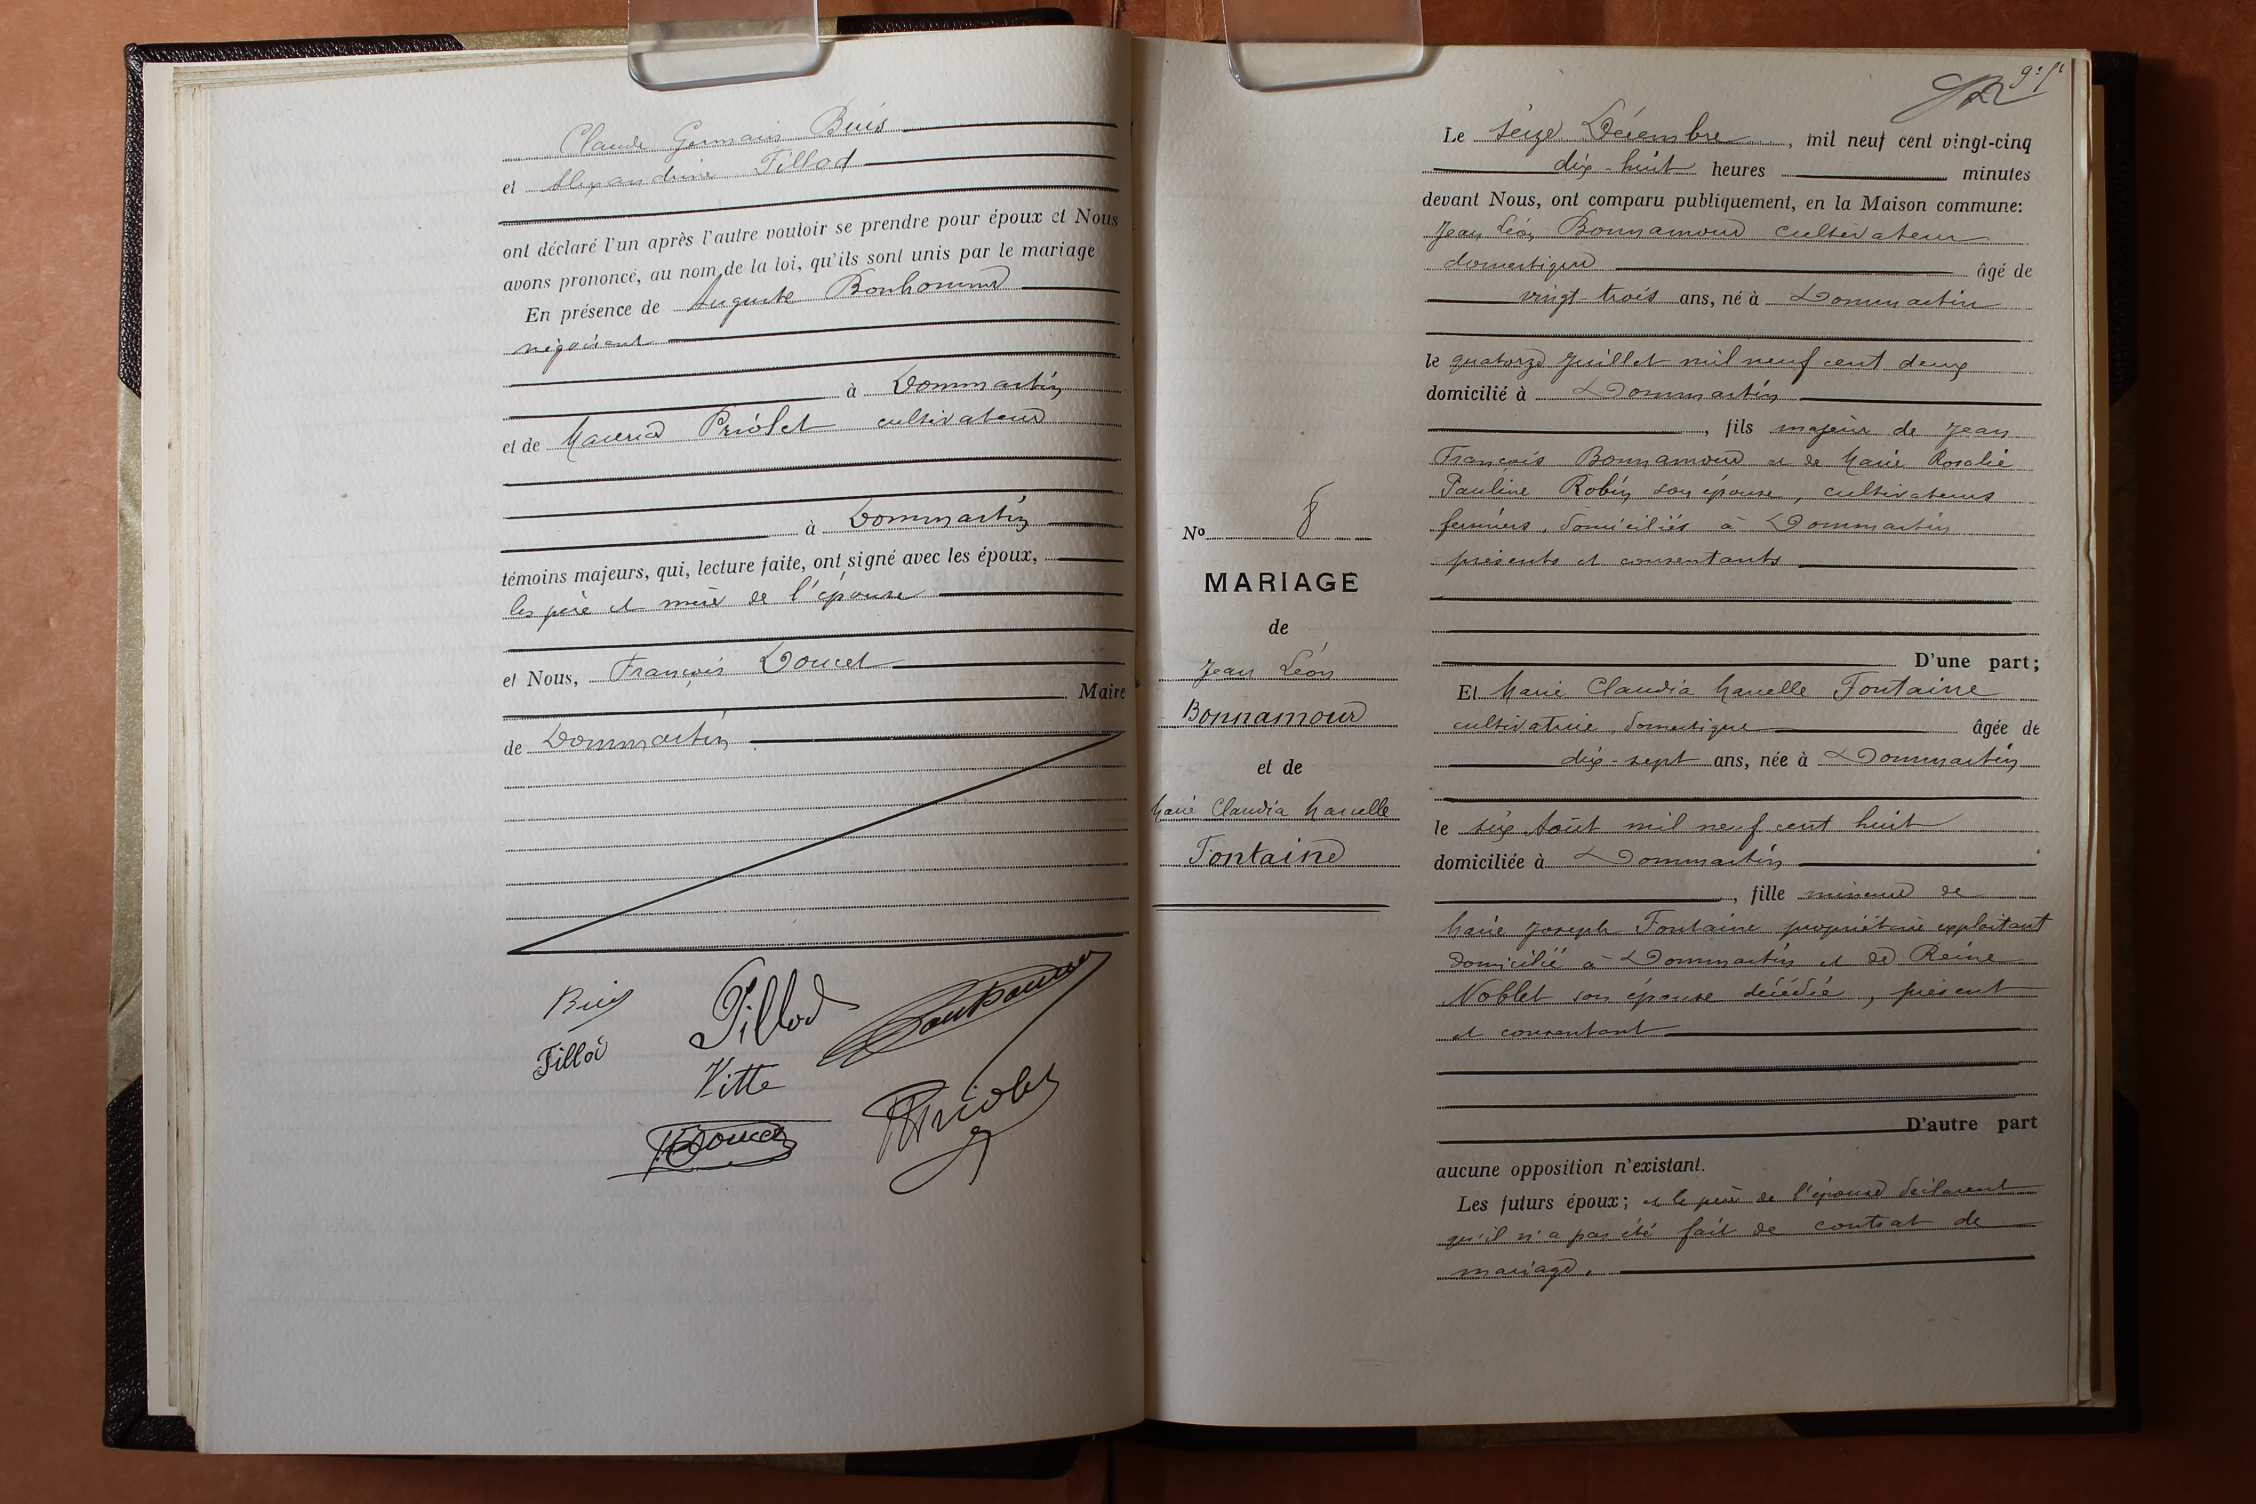 Claude Germain Buis
et Alexandrine Fillod
ont déclaré l'un après l'autre vouloir se prendre pour époux et Nous
avons prononcé, au nom de la loi, qu'ils sont unis par le mariage
En présence de Auguste Bonhomme
négociant
à Dommartin
et de Maurice Priolet cultivateur
à Dommartin
témoins majeurs, qui, lecture faite, ont signé avec les époux,
les père et mère de l'épouse
et Nous, François Doucet
Maire
de Dommartin
Buis
Fillod
Fillod
Vitte
Doucet
Priolet
Le seize Décembre, mil neuf cent vingt-cinq
dix-huit heures minutes
devant Nous, ont comparu publiquement, en la Maison commune:
Jean Léon Bonnamour cultivateur
domestique âgé de
vingt-trois ans, né à Dommartin
le quatorze Juillet mil neuf cent deux
domicilié à Dommartin
, fils majeur de Jean
François Bonnamour et de Marie Rosalie
Pauline Robin son épouse, cultivateurs
fermiers, domiciliés à Dommartin
présents et consentants
D'une part;
Et Marie Claudia Marcelle Fontaine
cultivatrice, domestique âgée de
dix-sept ans, née à Dommartin
le six Août mil neuf cent huit
domiciliée à Dommartin
, fille mineure de
Marie Joseph Fontaine propriétaire exploitant
domicilié à Dommartin et de Reine
Noblet son épouse décédée, présent
et consentant
D'autre part
aucune opposition n'existant.
Les futurs époux; et le père de l'épouse déclarent
qu'il n'a pas été fait de contrat de
mariage.
No 8
MARIAGE
de
Jean Léon
Bonnamour
et de
Marie Claudia Marcelle
Fontaine